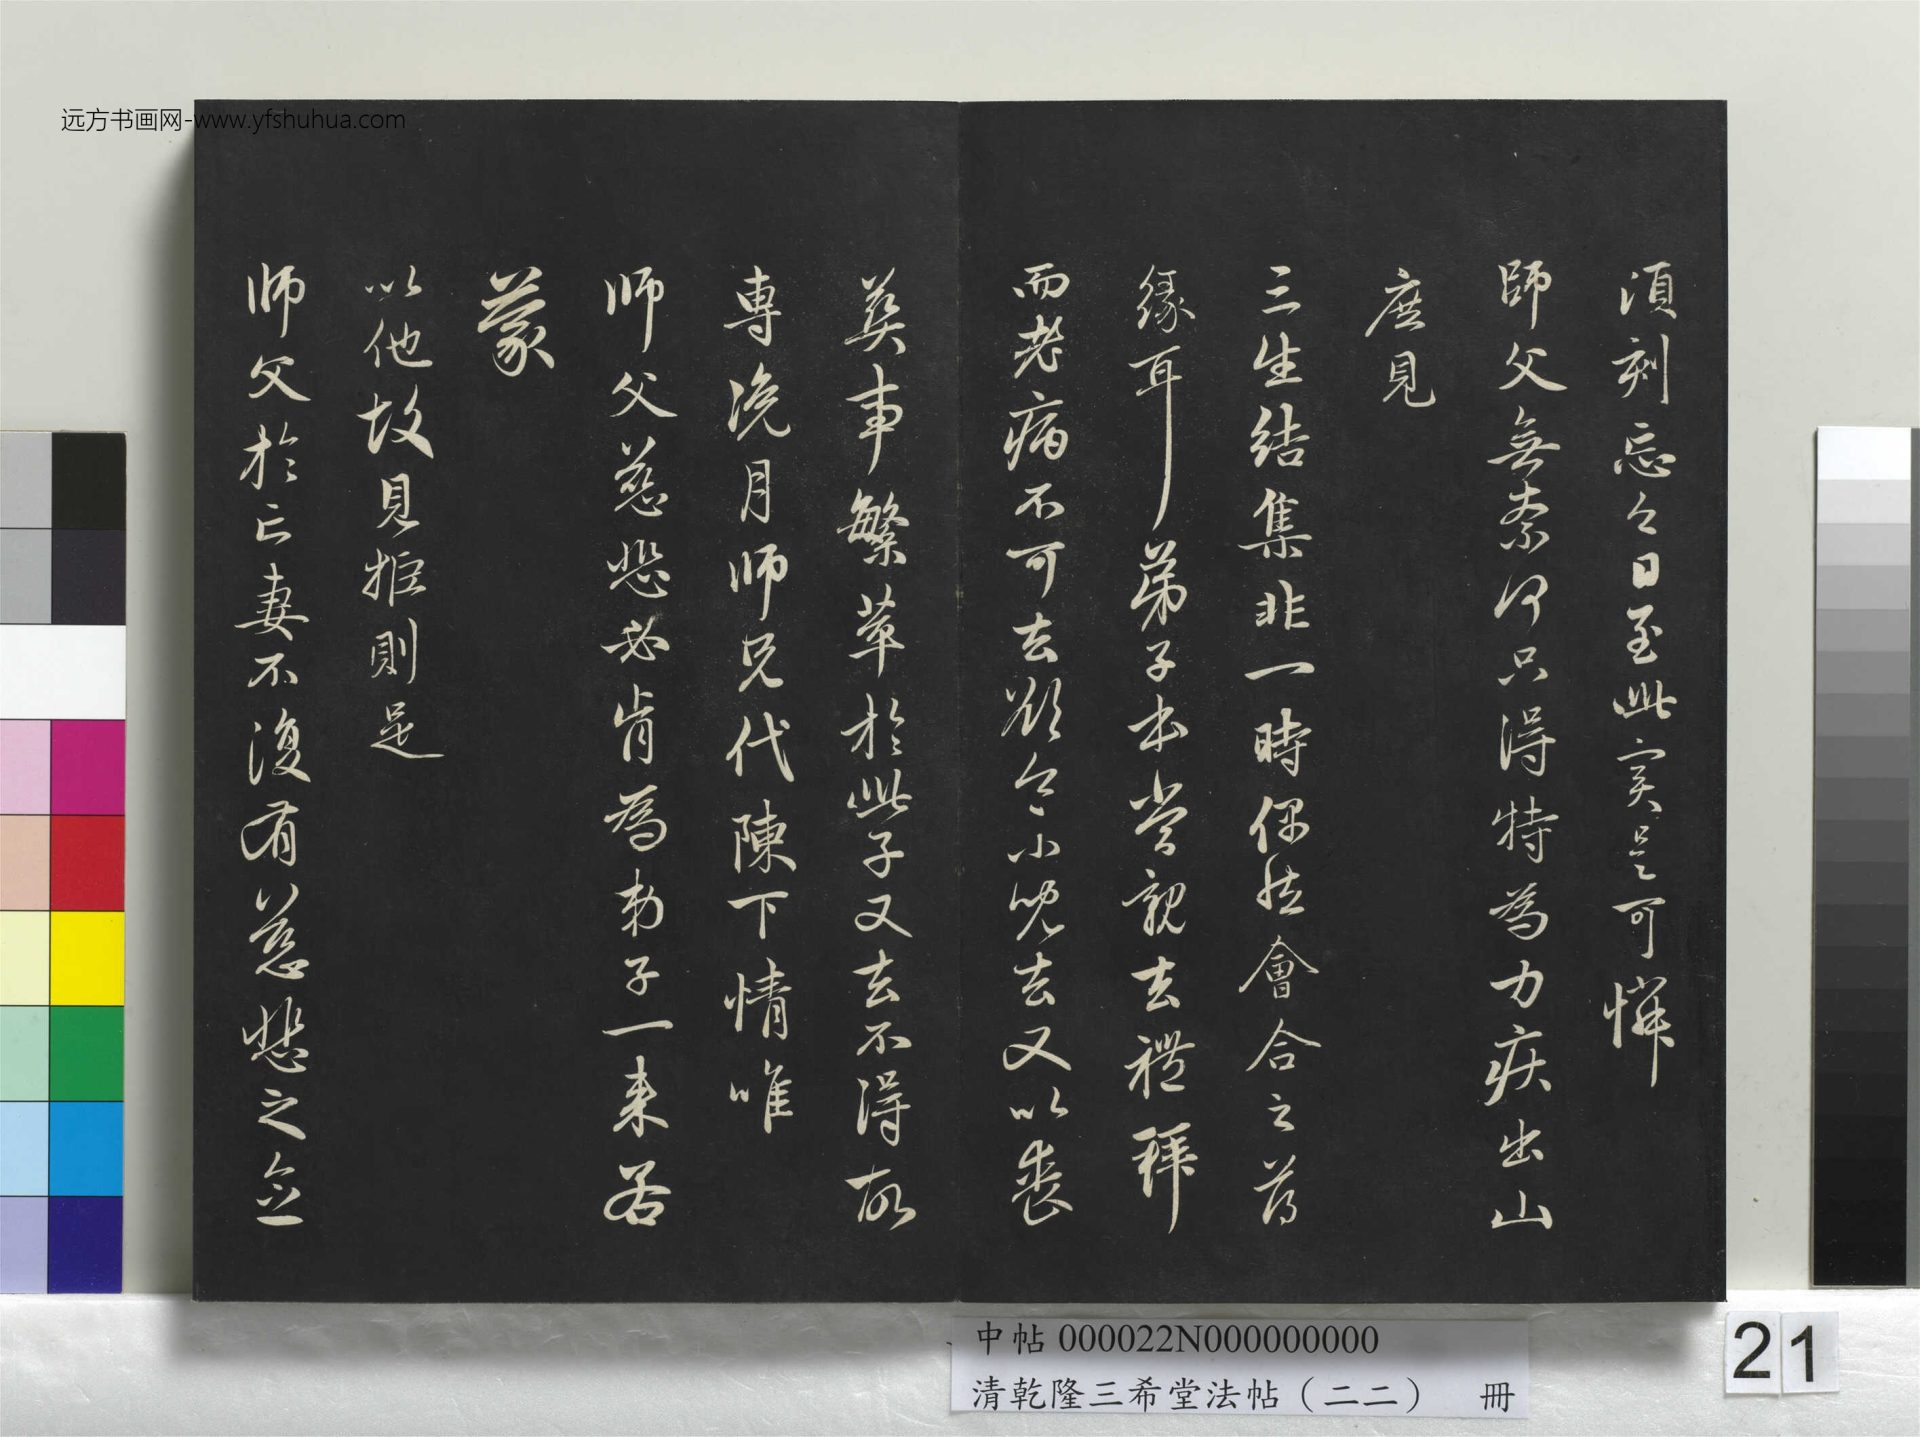 远方书画网-www.yfshuhua.com
須刻忘今日至此實是可憐
師父無柰何只得特為力疾出山
庶見
三生結集非一時偶然會合之薄
緣耳弟子本當親去禮拜
而老病不可去欲令小兒去又以喪
葬事繁草於此子又去不得故
專浼月師兄代陳下情唯
师父慈悲必肯為弟子一来若
蒙
以他故見拒則是
师父於亡妻不復有慈悲之念
中帖 000022N000000000
清乾隆三希堂法帖（二二） 冊
21